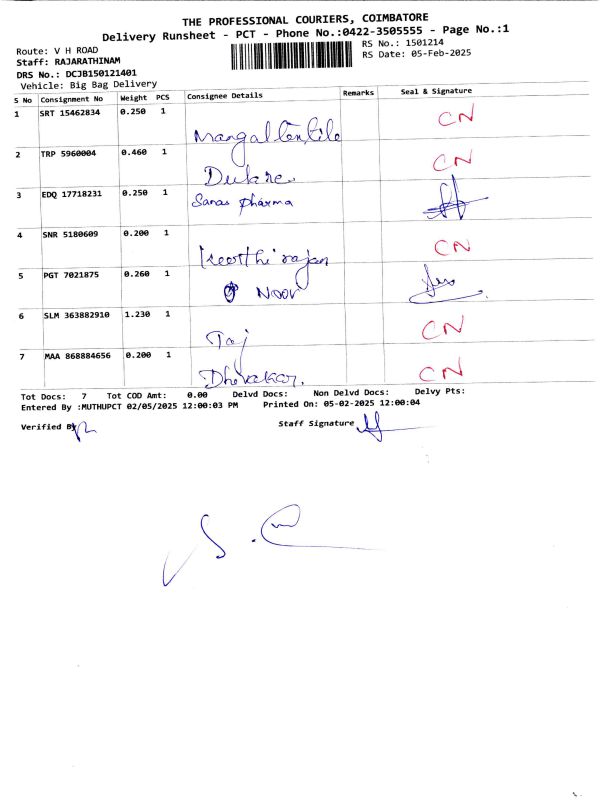 THE PROFESSIONAL COURIERS, COIMBATORE
Delivery Runsheet - PCT - Phone No.:0422-3505555 - Page No.:1
Route: V H ROAD
RS No.: 1501214
Staff: RAJARATHINAM
RS Date: 05-Feb-2025
DRS No.: DCJB150121401
Vehicle: Big Bag Delivery
S No Consignment No Weight PCS Consignee Details Remarks Seal & Signature
1 SRT 15462834 0.250 1 CN
2 TRP 5960004 0.460 1 CN
3 EDQ 17718231 0.250 1 Saras pharma
4 SNR 5180609 0.200 1 Keerthi rajan CN
5 PGT 7021875 0.260 1 Noor
6 SLM 363882910 1.230 1 Taj CN
7 MAA 868884656 0.200 1 CN
Tot Docs: 7 Tot COD Amt: 0.00 Delvd Docs: Non Delvd Docs: Delvy Pts:
Entered By :MUTHUPCT 02/05/2025 12:00:03 PM Printed On: 05-02-2025 12:00:04
Verified By
Staff Signature